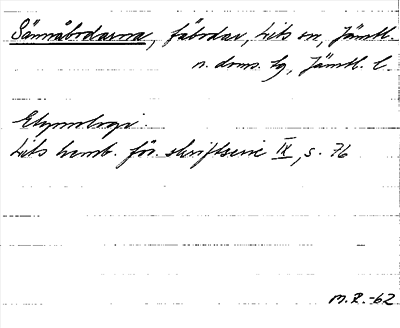 Sännåbodarna, fäbodar, Lits sn, Jämtl.
n. doms. hg, Jämtl. l.
Etymologi.
Lits hemb. för. skriftserie IX, s. 76
M.R.-62